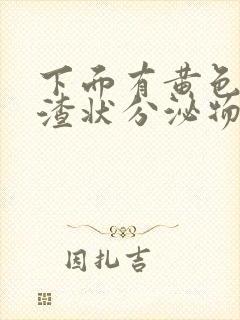 下而有黄色
渣状分泌物
因扎吉